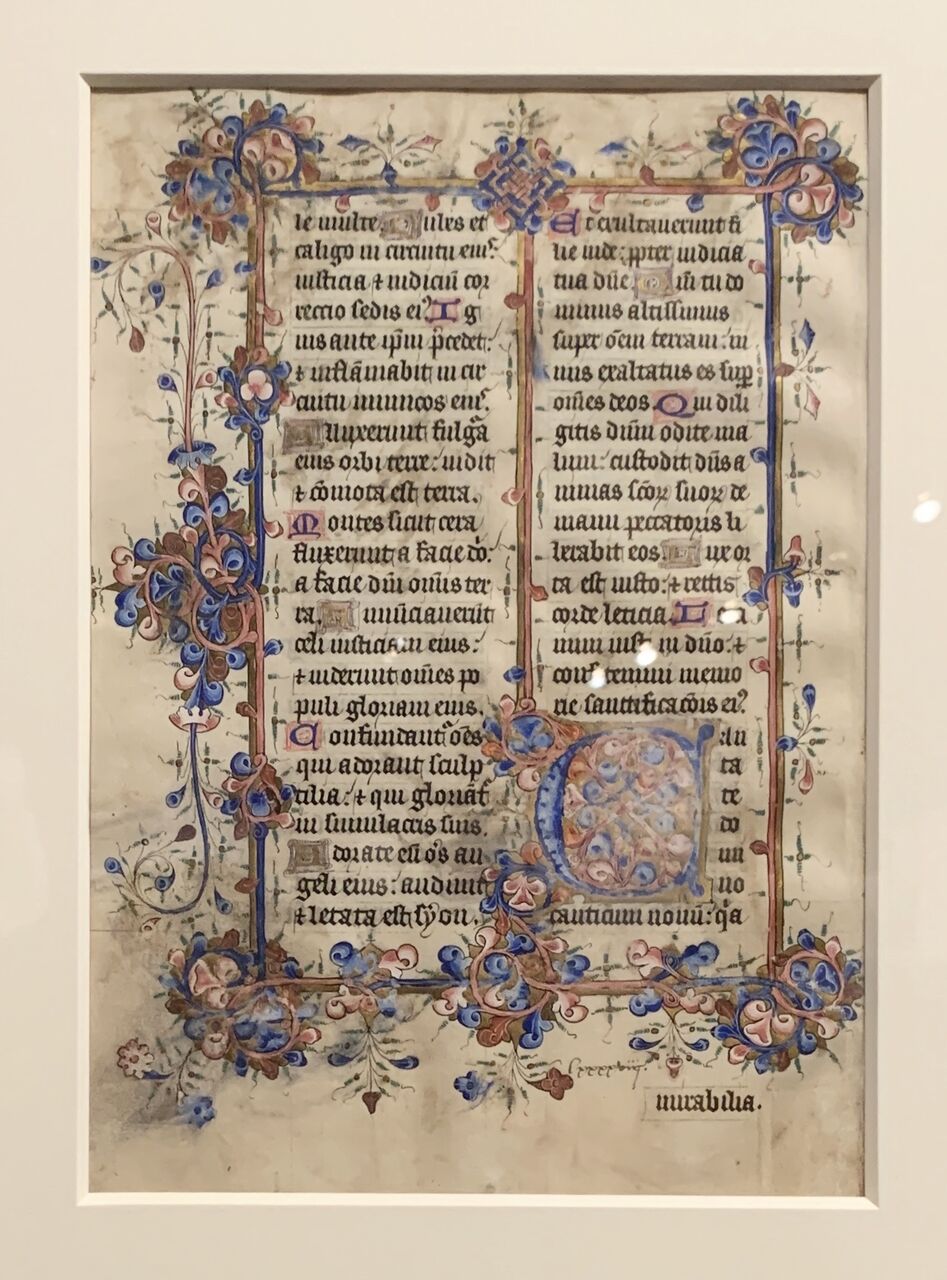 le multe. Nubes et
caligo in circuitu eiuꝰ.
iusticia ⁊ iudiciū cor
reccio sedis eiꝰ Ig
nis ante ipm̄ p̄cedet:
⁊ inflāmabit in cir
cuitu inimicos eiꝰ.
Alluxerunt fulgᵃa
eius orbi terre: uidit
⁊ cōmota est terra.
Montes sicut cera
fluxerunt a facie do:
a facie dn̄i omnis ter
ra. Annūciauerūt
celi iusticiam eius:
⁊ uiderunt om̄es po
puli gloriam eius.
Confundant᷑ oēs
qui adorant sculp
tilia: ⁊ qui gloriant᷑
in simulacris suis.
Adorate eū oēs an
geli eius: audiuit
⁊ letata est syon.
Et exultauerunt fi
lie iude: ꝓpter iudicia
tua dn̄e Qm̄ tu do
minus altissimus
super oēm terram: ni
mis exaltatus es suꝑ
om̄es deos Qui dili
gitis dn̄m odite ma
lum: custodit dn̄s a
nimas scōꝝ suoꝝ de
manu peccatoris li
berabit eos Lux or
ta est iusto: ⁊ rectis
corde leticia. Leta
mini iusti in dn̄o: ⁊
confitemini memo
rie sanctificacōis eiꝰ
Can
ta
te
do
mi
no
canticum nouū: qᵃa
lxxxxviij.
mirabilia.